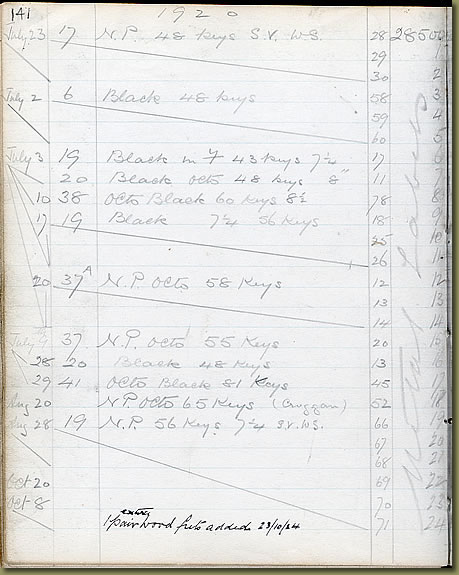 141 1920
July 23 17 N.P. 48 Keys S.V. W.S. 28 28500
29 1
30 2
July 2 6 Black 48 Keys 58 3
59 4
60 5
July 3 19 Black 43 Keys 7¼ 17 6
20 Black Octo 48 Keys 8" 11 7
10 38 Octo Black 60 Keys 8½ 78 8
17 19 Black 7¼ 56 Keys 18 9
25 10
26 11
20 37A N.P. Octo 58 Keys 12 12
13 13
14 14
July 9 37 N.P. Octo 55 Keys 20 15
28 20 Black 48 Keys 13 16
29 41 Octo Black 81 Keys 45 17
Aug 20 N.P. Octo 65 Keys (Cruggan) 52 18
Aug 28 19 N.P. 56 Keys 7¼ S.V. W.S. 66 19
67 20
68 21
Oct 20 69 22
Oct 8 70 23
extra
1 pair wood frets added 23/10/24 71 24